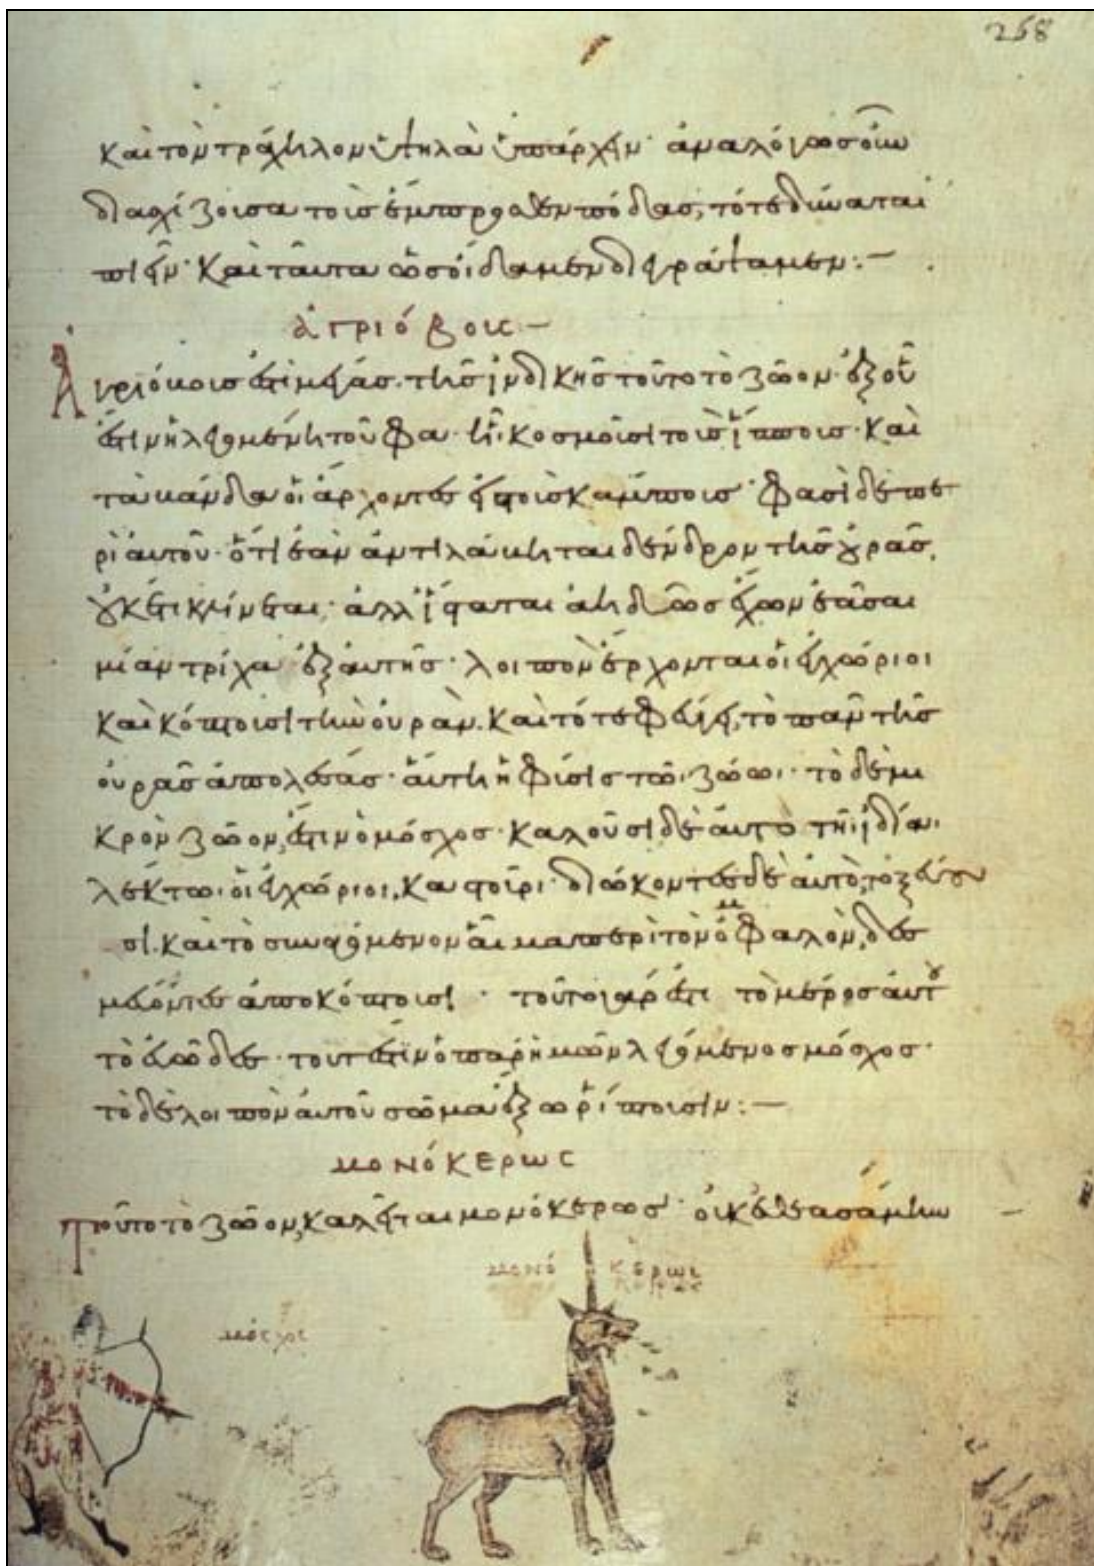 268
καὶ τὸν τράχηλον ὑψηλὰ ὑπάρχειν· ἀναλόγως οὖν
διασχίζουσα τοὺς ἔμπροσθεν πόδας, τότε δύναται
πιεῖν· καὶ ταῦτα ὡς οἴδαμεν διεγράψαμεν:—
ἀγριόβους—
Ἀγριόβους ἐστὶ μέγας τῆς ἰνδικῆς τοῦτο τὸ ζῶον· ἐξ οὗ
ἐστιν ἡ λεγομένη τοῦφα· ἧι κοσμοῦσι τοὺς ἵππους· καὶ
τὰ βάνδα οἱ ἄρχοντες ἐν τοῖς κάμποις· φασὶ δὲ πε
ρὶ αὐτοῦ· ὅτι ἐὰν ἀντιλάβηται δένδρον τῆς οὐρᾶς,
οὐκέτι κινεῖται· ἀλλ' ἵσταται ἀηδῶς ἔχων ἐᾶσαι
μίαν τρίχα ἐξ αὐτῆς· λοιπὸν ἔρχονται οἱ ἐγχώριοι
καὶ κόπτουσι τὴν οὐράν. καὶ τότε φεύγει, τὸ πᾶν τῆς
οὐρᾶς ἀπολέσας· αὕτη ἡ φύσις τῶι ζώωι· τὸ δὲ μι
κρὸν ζῶον, ἐστιν ὁ μόσχος· καλοῦσι δὲ αὐτὸ τῆι ἰδίαι
λέκτωι οἱ ἐγχώριοι, καστοῦρι· διώκοντες δὲ αὐτὸ, τοξεύου
σι. καὶ τὸ συναγόμενον αἷμα περὶ τὸν ὀμφαλὸν, δεσ
μεύοντες ἀποκόπτουσι· τοῦτο γάρ ἐστι τὸ μέρος αὐτοῦ
τὸ εὐῶδες· τουτέστιν ὁ παρ' ἡμῶν λεγόμενος μόσχος·
τὸ δὲ λοιπὸν αὐτοῦ σῶμα ἔξω ῥίπτουσιν:—
μονόκερως
Τοῦτο τὸ ζῶον, καλεῖται μονόκερως· οὐκ ἐθεασάμην
μονόκερως
μόσχος